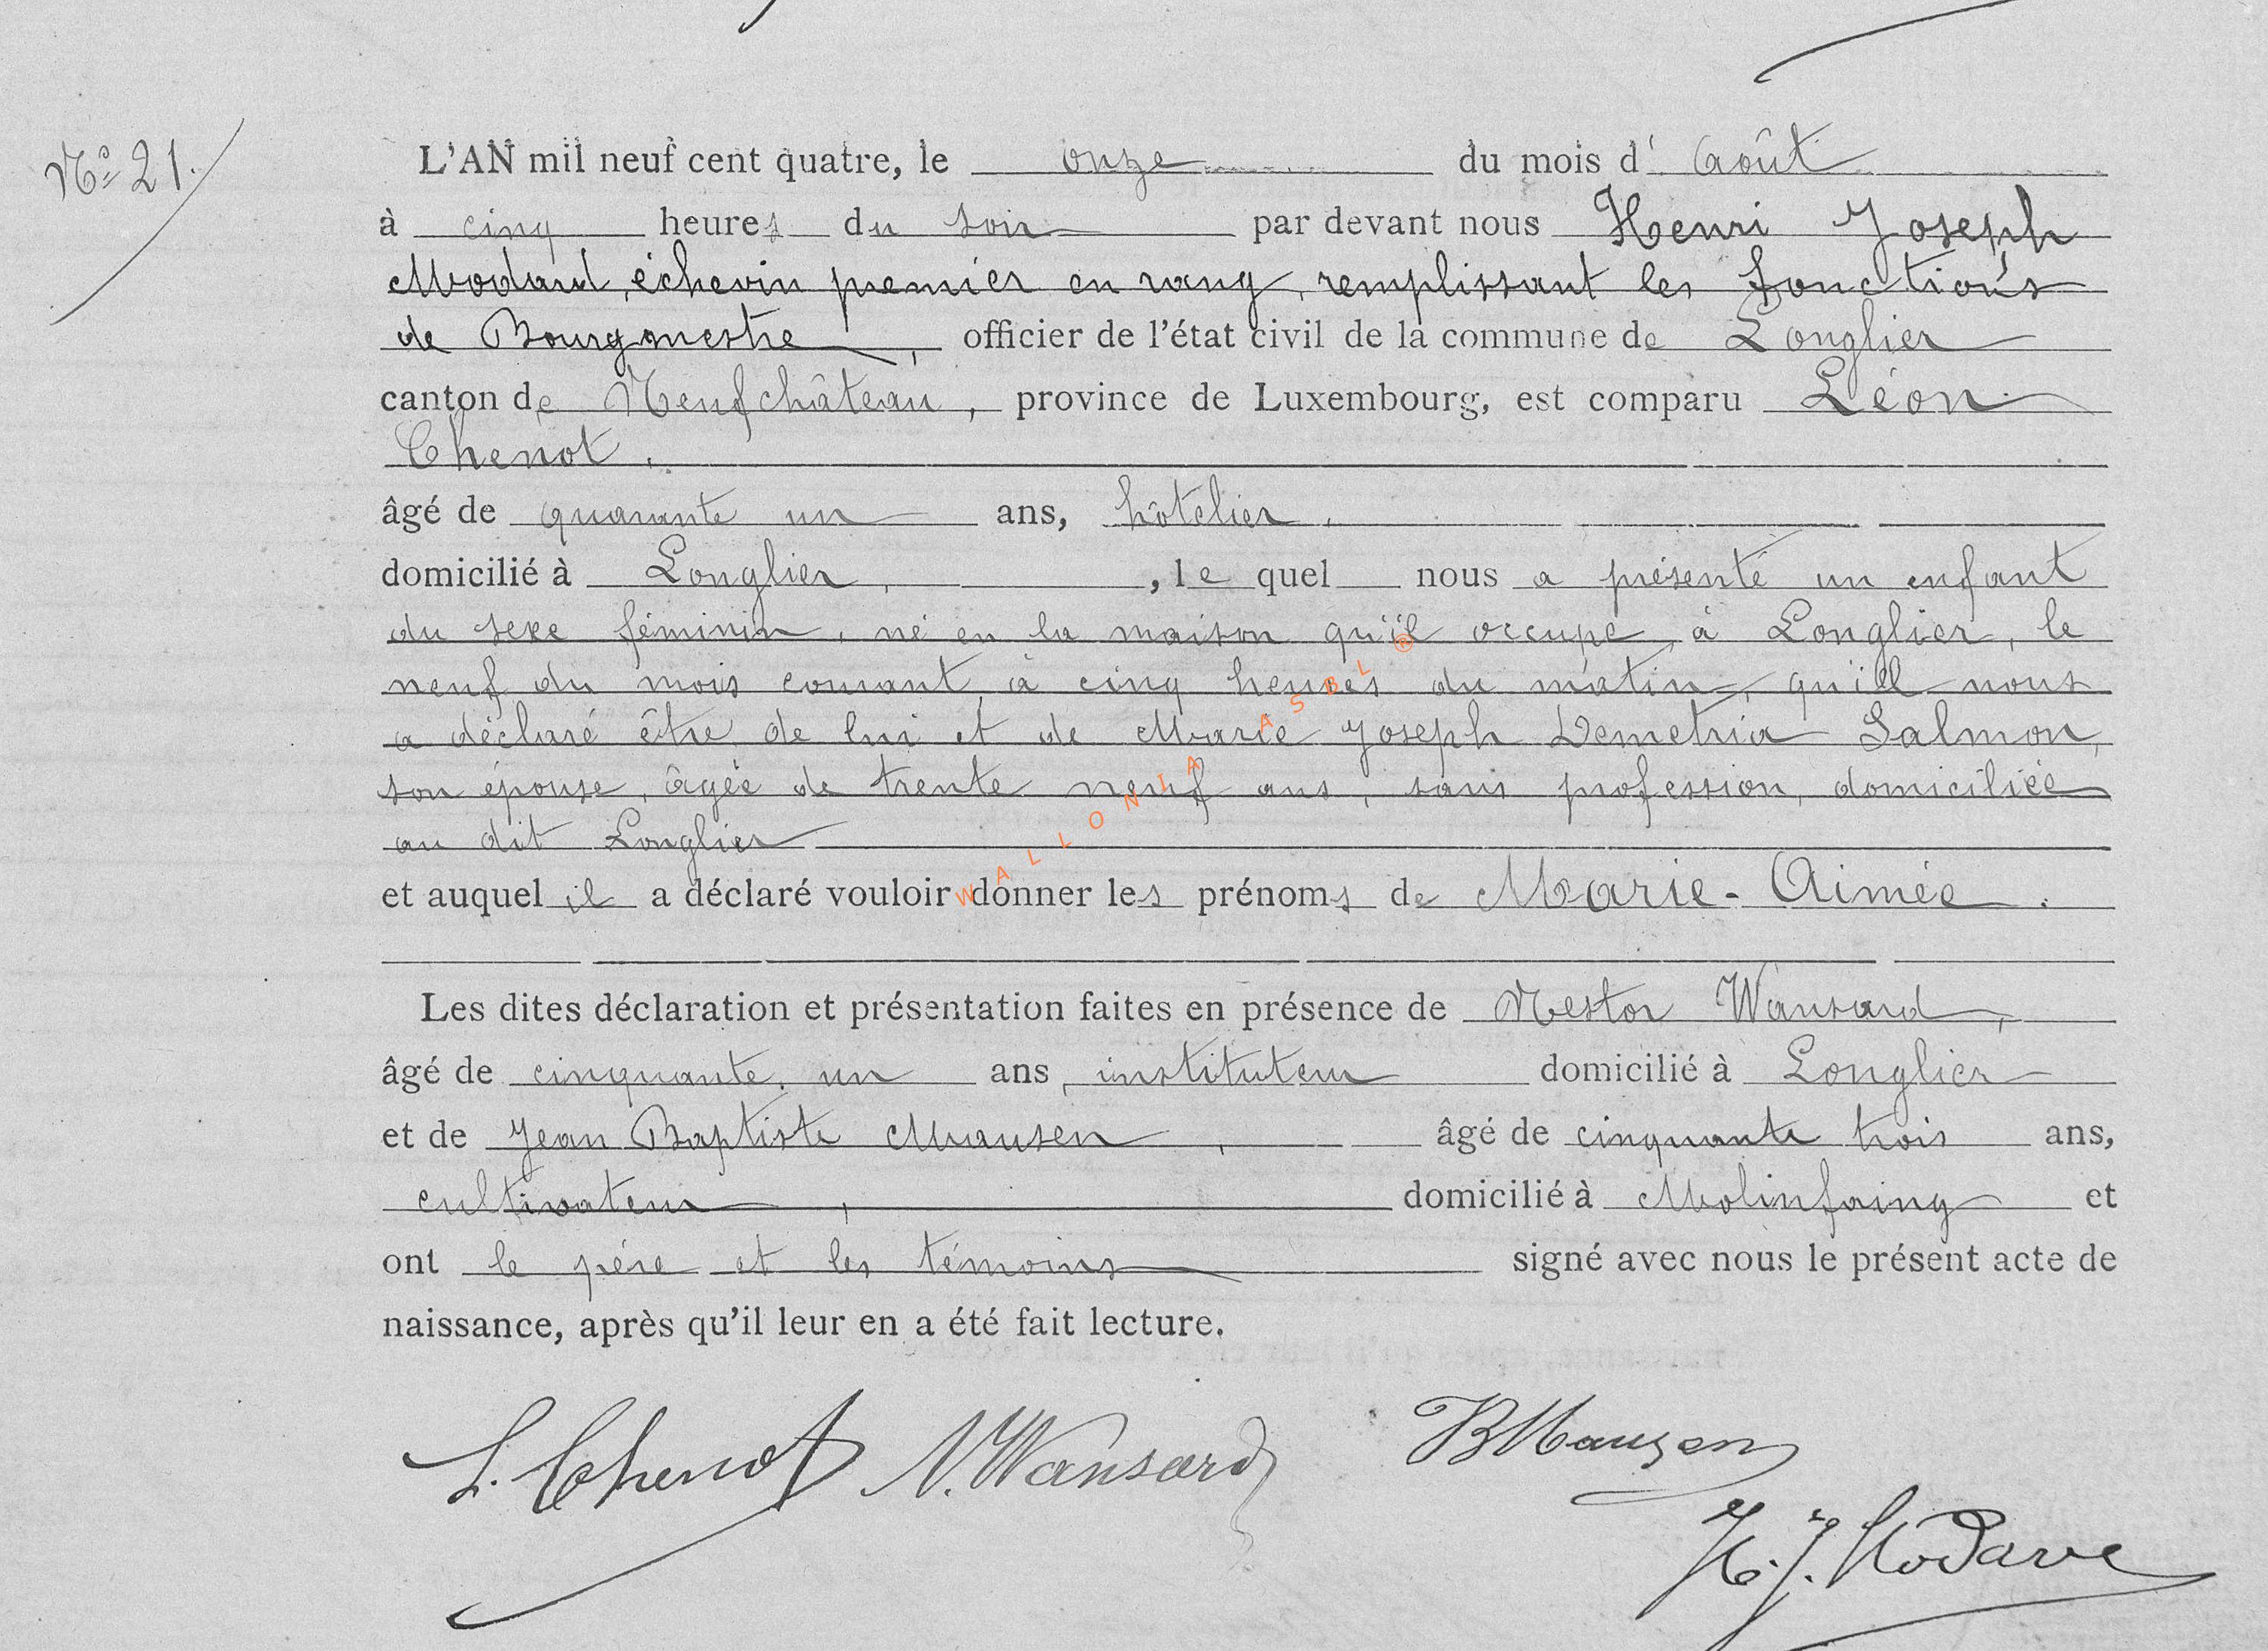 Nº 21.
L'AN mil neuf cent quatre, le onze du mois d' Août
à cinq heures du soir par devant nous Henri Joseph
échevin premier en rang, remplissant les fonctions
de Bourgmestre, officier de l'état civil de la commune de Longlier
canton de Neufchâteau, province de Luxembourg, est comparu Léon
Chenot.
âgé de quarante un ans, hôtelier,
domicilié à Longlier, , le quel nous a présenté un enfant
du sexe féminin, né en la maison qu'il occupe à Longlier, le
neuf du mois courant, à cinq heures du matin, qu'il nous
a déclaré être de lui et de Marie Joseph Demetria Salmon,
son épouse, âgée de trente neuf ans, sans profession, domiciliée
au dit Longlier
et auquel il a déclaré vouloir donner les prénoms de Marie-Aimée.
Les dites déclaration et présentation faites en présence de Nestor Wansard,
âgé de cinquante un ans, instituteur domicilié à Longlier
et de Jean Baptiste Mausen, âgé de cinquante trois ans,
cultivateur, domicilié à Molinfaing et
ont le père et les témoins signé avec nous le présent acte de
naissance, après qu'il leur en a été fait lecture.
L. Chenot N. Wansard BMausen
H. J. Modave
WALLONIA ASBL ®